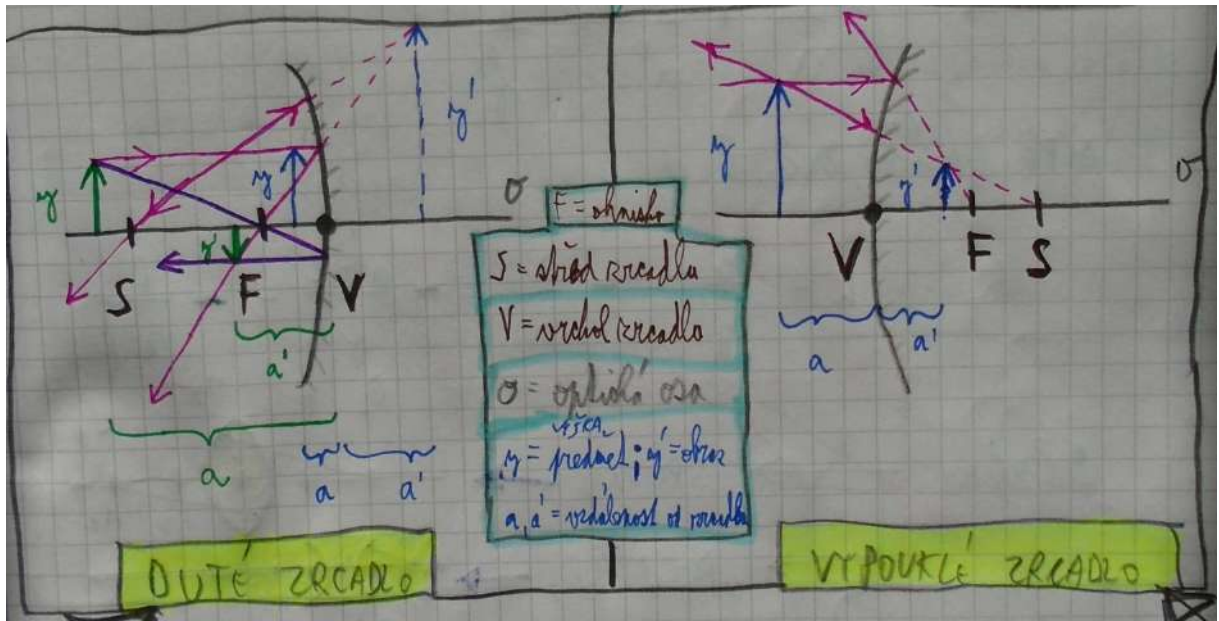 y'
y
y
y'
o
S
F
V
a'
a
a
a'
DUTÉ ZRCADLO
F = ohnisko
S = střed zrcadla
V = vrchol zrcadla
o = optická osa
VÝŠKA
y = předmět; y' = obraz
a, a' = vzdálenost od zrcadla
y
y'
o
V
F
S
a
a'
VYPOUKLÉ ZRCADLO